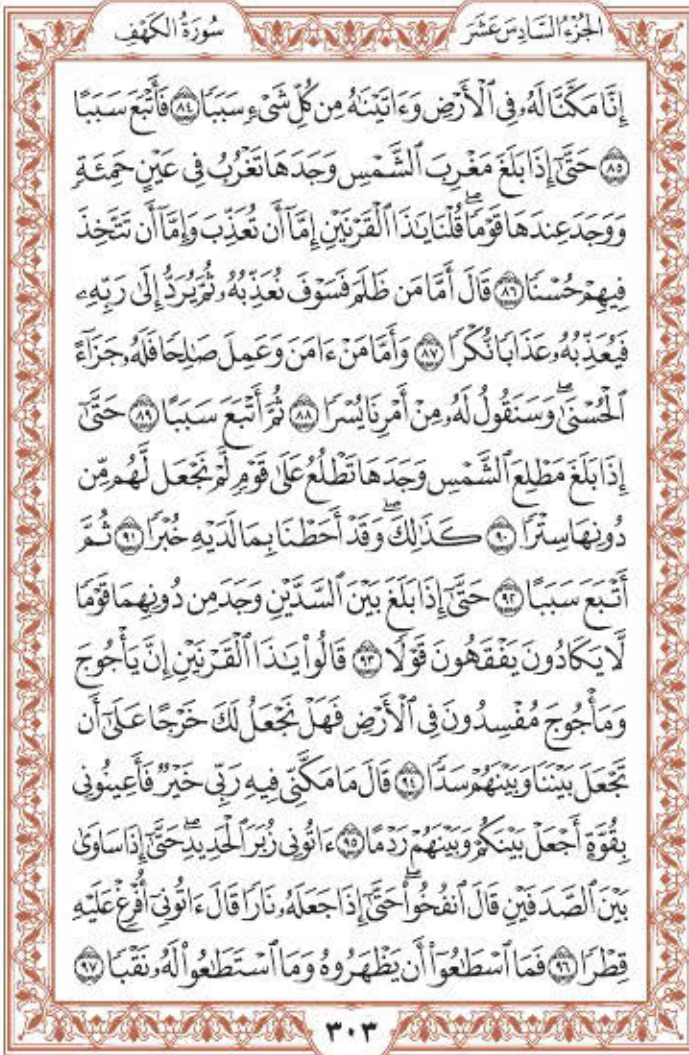 الجُزْءُ السَّادِسَ عَشَرَ سُورَةُ الكَهْفِ
إِنَّا مَكَّنَّا لَهُۥ فِى ٱلْأَرْضِ وَءَاتَيْنَٰهُ مِن كُلِّ شَىْءٍ سَبَبًا ٨٤ فَأَتْبَعَ سَبَبًا
٨٥ حَتَّىٰٓ إِذَا بَلَغَ مَغْرِبَ ٱلشَّمْسِ وَجَدَهَا تَغْرُبُ فِى عَيْنٍ حَمِئَةٍ
وَوَجَدَ عِندَهَا قَوْمًا ۗ قُلْنَا يَٰذَا ٱلْقَرْنَيْنِ إِمَّآ أَن تُعَذِّبَ وَإِمَّآ أَن تَتَّخِذَ
فِيهِمْ حُسْنًا ٨٦ قَالَ أَمَّا مَن ظَلَمَ فَسَوْفَ نُعَذِّبُهُۥ ثُمَّ يُرَدُّ إِلَىٰ رَبِّهِۦ
فَيُعَذِّبُهُۥ عَذَابًا نُّكْرًا ٨٧ وَأَمَّا مَنْ ءَامَنَ وَعَمِلَ صَٰلِحًا فَلَهُۥ جَزَآءً
ٱلْحُسْنَىٰ ۖ وَسَنَقُولُ لَهُۥ مِنْ أَمْرِنَا يُسْرًا ٨٨ ثُمَّ أَتْبَعَ سَبَبًا ٨٩ حَتَّىٰٓ
إِذَا بَلَغَ مَطْلِعَ ٱلشَّمْسِ وَجَدَهَا تَطْلُعُ عَلَىٰ قَوْمٍ لَّمْ نَجْعَل لَّهُم مِّن
دُونِهَا سِتْرًا ٩٠ كَذَٰلِكَ ۖ وَقَدْ أَحَطْنَا بِمَا لَدَيْهِ خُبْرًا ٩١ ثُمَّ
أَتْبَعَ سَبَبًا ٩٢ حَتَّىٰٓ إِذَا بَلَغَ بَيْنَ ٱلسَّدَّيْنِ وَجَدَ مِن دُونِهِمَا قَوْمًا
لَّا يَكَادُونَ يَفْقَهُونَ قَوْلًا ٩٣ قَالُوا۟ يَٰذَا ٱلْقَرْنَيْنِ إِنَّ يَأْجُوجَ
وَمَأْجُوجَ مُفْسِدُونَ فِى ٱلْأَرْضِ فَهَلْ نَجْعَلُ لَكَ خَرْجًا عَلَىٰٓ أَن
تَجْعَلَ بَيْنَنَا وَبَيْنَهُمْ سَدًّا ٩٤ قَالَ مَا مَكَّنِّى فِيهِ رَبِّى خَيْرٌ فَأَعِينُونِى
بِقُوَّةٍ أَجْعَلْ بَيْنَكُمْ وَبَيْنَهُمْ رَدْمًا ٩٥ ءَاتُونِى زُبَرَ ٱلْحَدِيدِ ۖ حَتَّىٰٓ إِذَا سَاوَىٰ
بَيْنَ ٱلصَّدَفَيْنِ قَالَ ٱنفُخُوا۟ ۖ حَتَّىٰٓ إِذَا جَعَلَهُۥ نَارًا قَالَ ءَاتُونِىٓ أُفْرِغْ عَلَيْهِ
قِطْرًا ٩٦ فَمَا ٱسْطَٰعُوٓا۟ أَن يَظْهَرُوهُ وَمَا ٱسْتَطَٰعُوا۟ لَهُۥ نَقْبًا ٩٧
٣٠٣